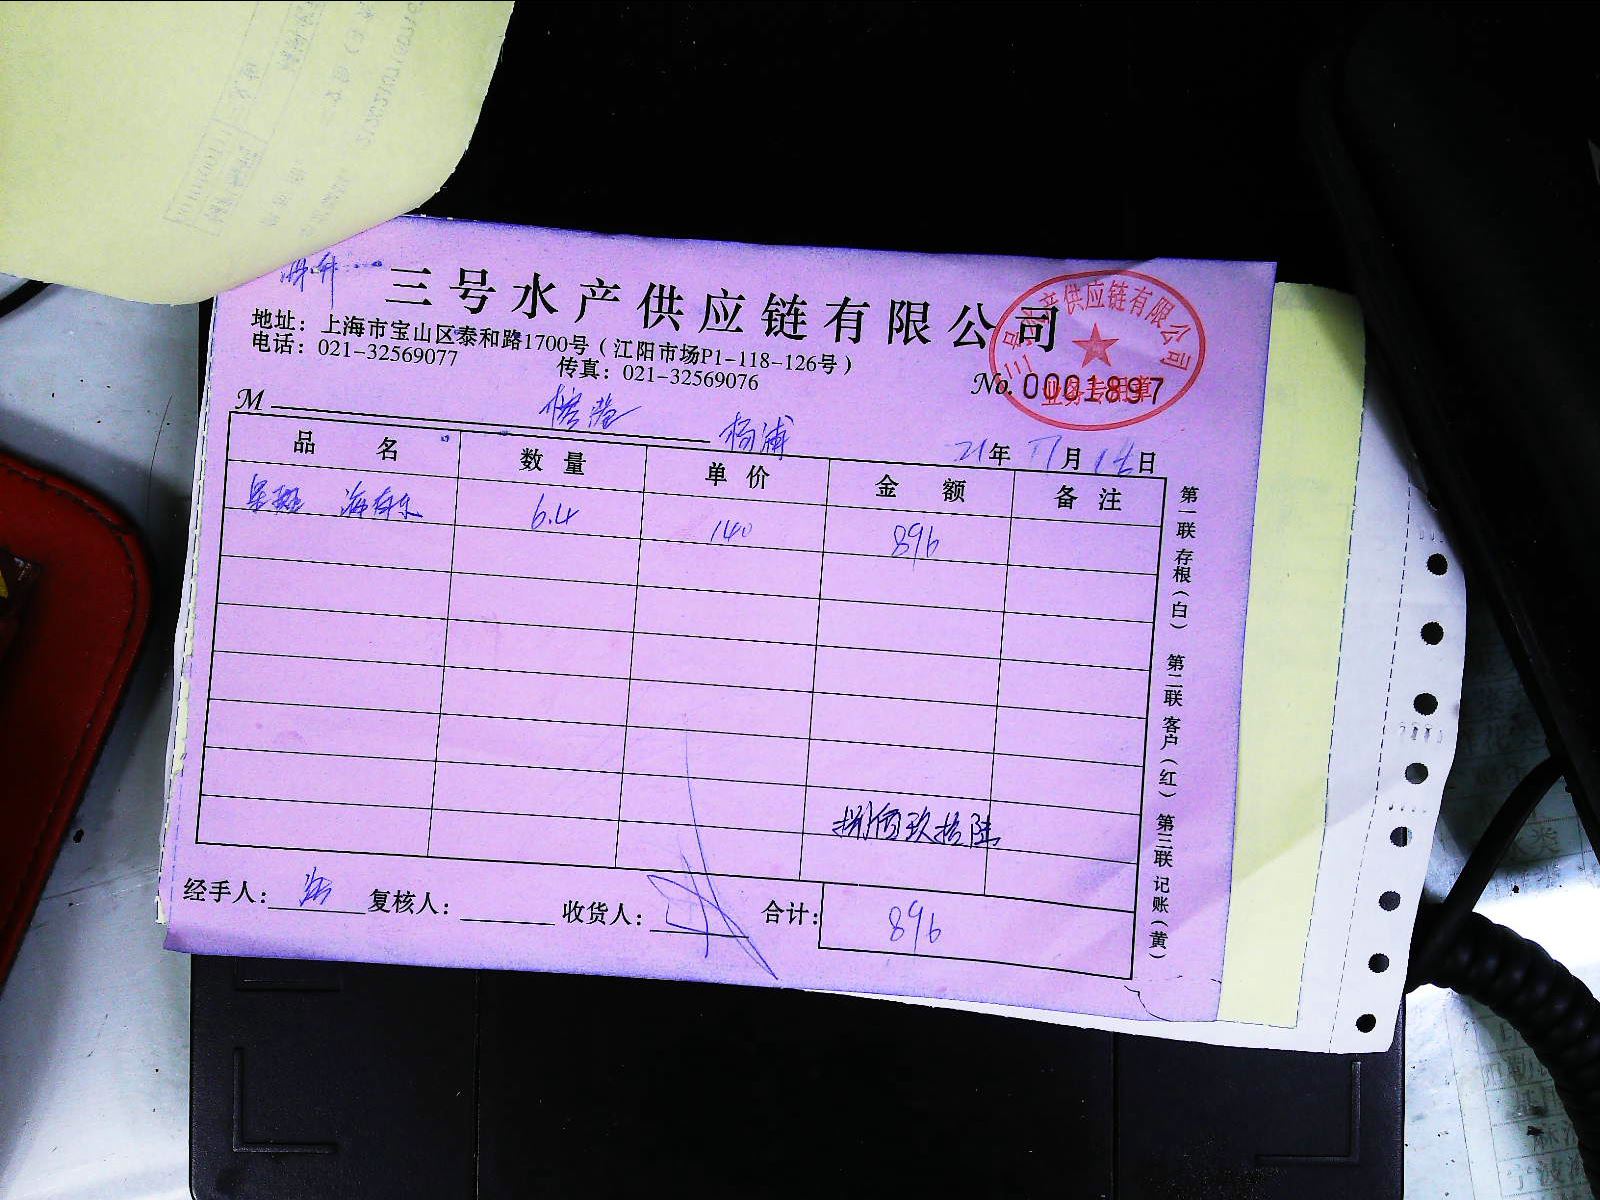 三号水产供应链有限公司
地址：上海市宝山区泰和路1700号（江阳市场P1-118-126号）
电话：021-32569077
传真：021-32569076
No. 0001897
三号水产供应链有限公司
业务专用章
M 杨浦
21年 11月 日
品 名 数 量 单 价 金 额 备 注
星斑 6.4 140 896
捌佰玖拾陆
经手人： 复核人： 收货人： 合计： 896
第一联 存根（白） 第二联 客户（红） 第三联 记账（黄）